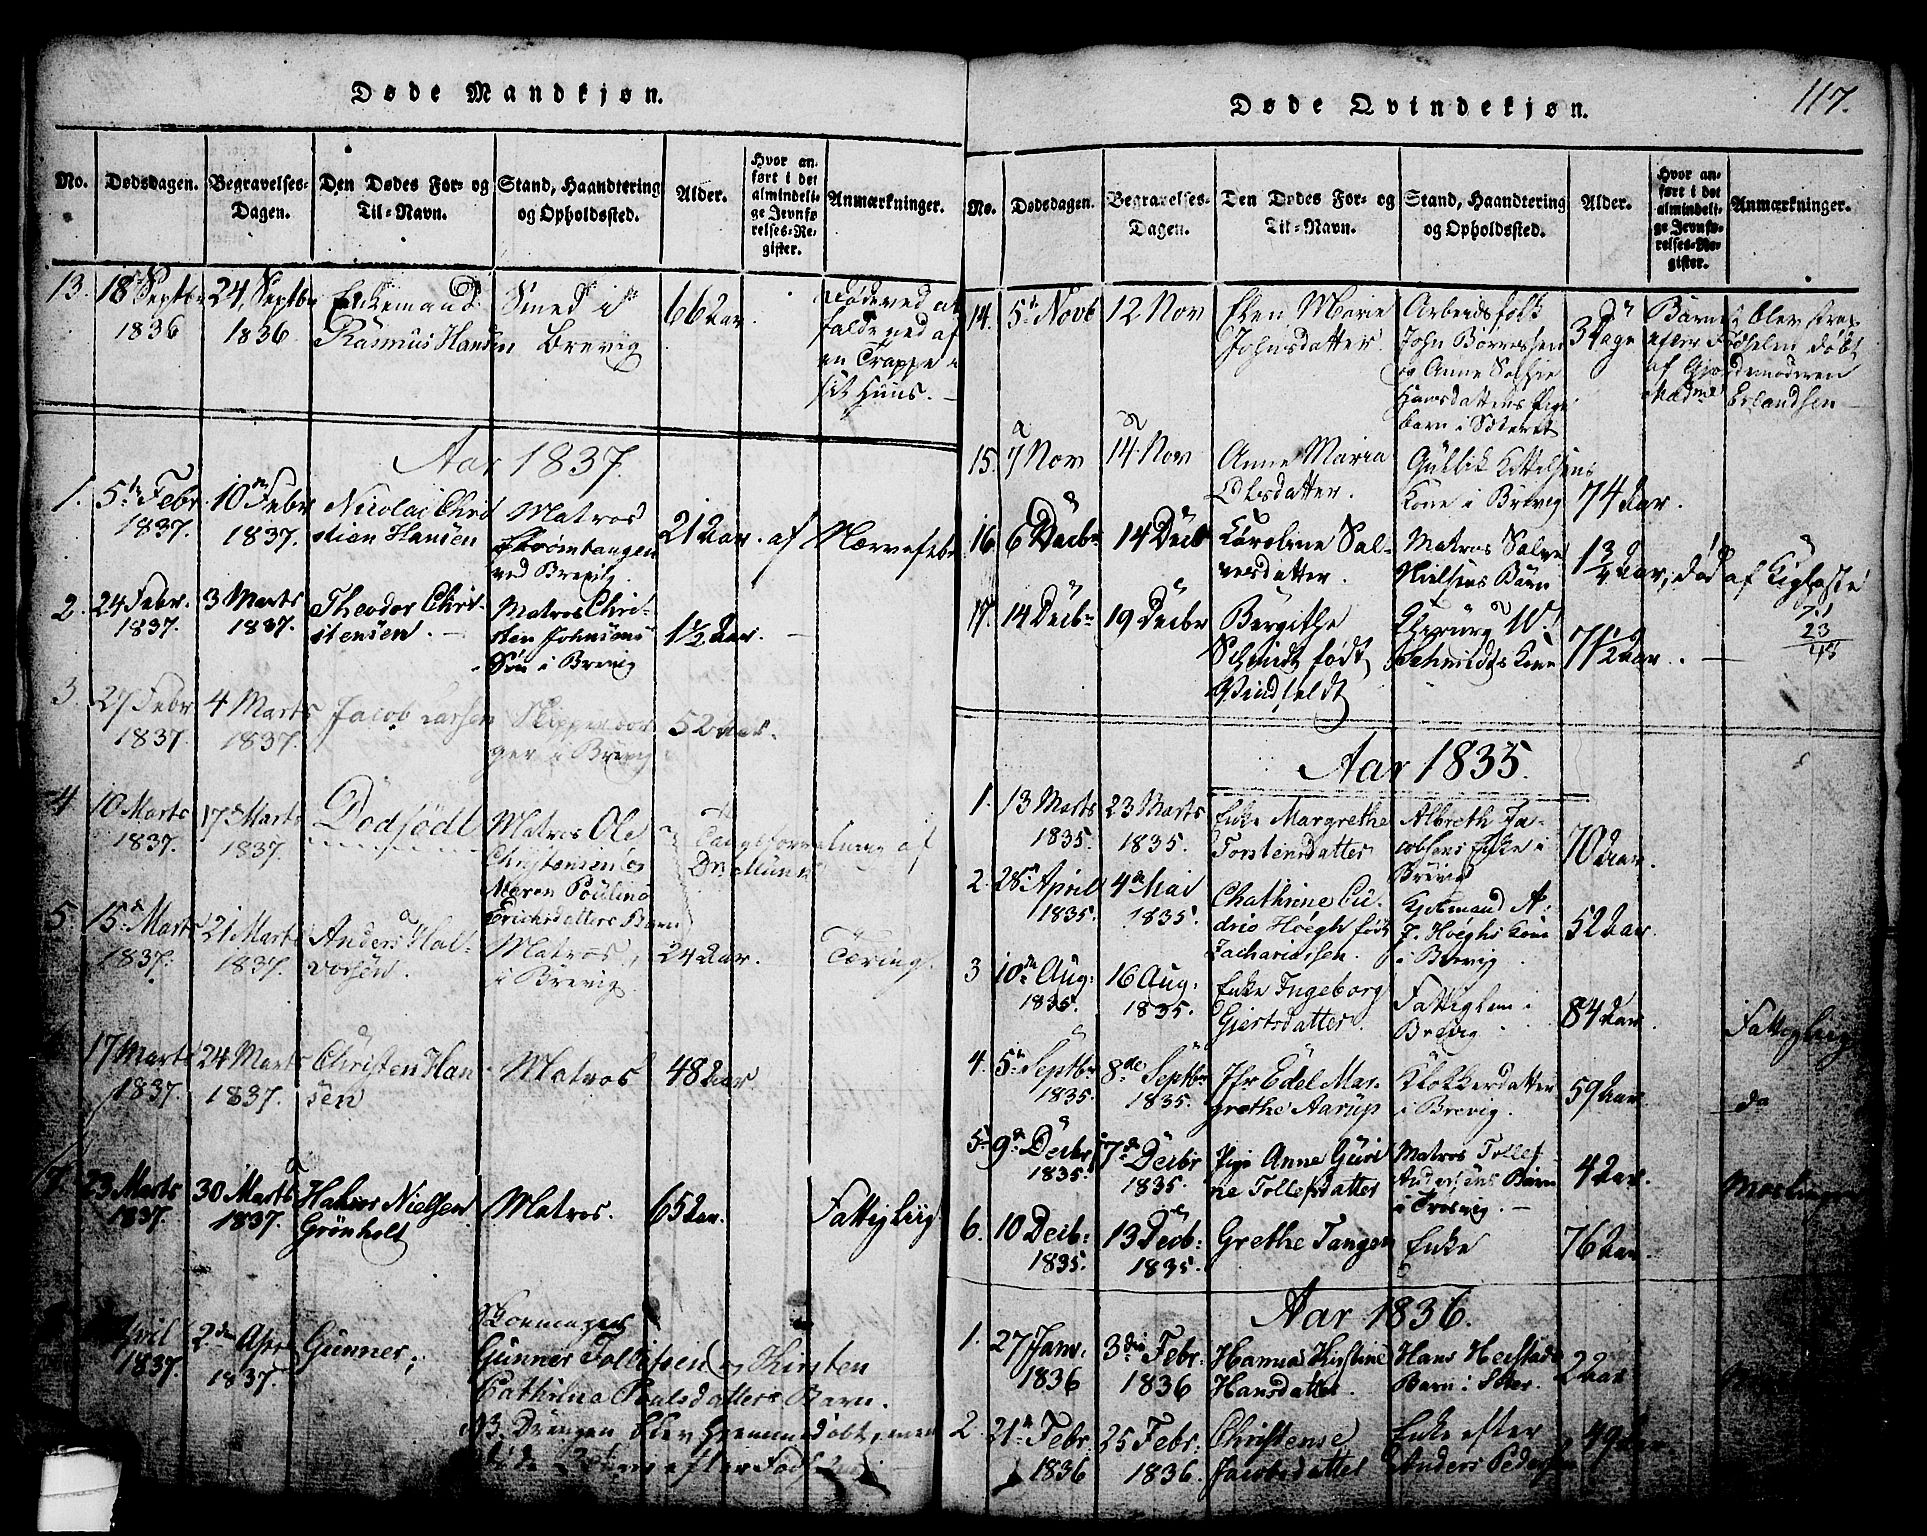 Døde Mandkjøn.
No.
Dødsdagen.
Begravelses-
Dagen.
Den Dødes For- og
Til-Navn.
Stand, Haandtering
og Opholdssted.
Alder.
Hvor an-
ført i det
almindeli-
ge Jevnfø-
relses-Re-
gister.
Anmærkninger.
13.
18 Septbr
1836
24 Septbr
1836.
Enkemand
Rasmus Hansen
Smed i
Brevig
66 Aar.
døde ved at
falde ned af
en Trappe i
sit Huus.
Aar 1837.
1.
5te Febr.
1837.
10de Febr
1837.
Nicolai Chri
stian Hansen
Matros
Strømtangen
ved Brevig.
21 Aar.
af Nervefeber
2.
24 Febr.
1837.
3 Marts
1837.
Theodor Chri-
stensen.
Matros Chri-
sten Johnsens
Søn i Brevig
1½ Aar.
3.
27 Febr
1837
4 Marts
1837.
Jacob Larsen
Skipper bor
ger i Brevig
52 Aar.
4
10 Marts
1837.
17 Marts
1837.
Dødfødt
Matros Ole
Christensen og
Maren Pouline
Erichsdatters Barn
5.
15 Marts
1837.
21 Marts
1837.
Anders Hal-
vorsen.
Matros,
i Brevig
24 Aar.
Tæring.
17 Marts
1837.
24 Marts
1837.
Christen Han
sen
Matros
48 Aar
7
23 Marts
1837.
30 Marts
1837.
Nielsen
Grönholt
Matros.
65 Aar.
Fattigliig
April
1837.
2den April
1837.
Gunner,
Skomager
Gunner Tollefsen og Kirsten
Cathrine Poulsdatters Barn.
NB. Drengen blev hjemmedøbt, men
døde efter Fødselen
117.
Døde Qvindekjøn.
No.
Dødsdagen.
Begravelses-
Dagen.
Den Dødes For- og
Til-Navn.
Stand, Haandtering
og Opholdssted.
Alder.
Hvor an-
ført i det
almindeli-
ge Jevnfø-
relses-Re-
gister.
Anmærkninger.
14.
5te Novb
12 Nov
Elen Marie
Johnsdatter.
Arbeidsfolk
John Borresen
og Anne Sophie
Hansdatters Pige
barn i
3 Dage
Barnet blev strax
efter Fødselen døbt
af Gjordemoderen
Madme Erlandsen
15.
7 Nov
14 Nov
Anne Maria
Olsdatter.
Gulbik Kittelsens
Kone i Brevig
74 Aar.
16.
6 Decbr
14 Decb
Karolene Sal-
vesdatter.
Matros Salve
Nielsens Barn
1¾ Aar,
død af Kighoste
17.
14 Decbr
19 Decbr
Bergithe
Schmidt født
Windfeldt
Chirurg W.
Schmidts Kone
71½ Aar.
71
23
48
Aar 1835.
1.
13 Marts
1835.
23 Marts
1835.
Enke Margrethe
Torstensdatter
Albreth Ja-
cobsens Enke i
Brevig
70 Aar.
2.
28 April
1835.
4de Mai
1835.
Chathrine Cu-
drio Höegh født
Zachariassen.
Kjøbmand A.
J. Höeghs Kone
i Brevig
52 Aar.
3
10de Aug:
1835.
16 Aug:
1835.
Enke Ingeborg
Giertsdatter.
Fattiglem i
Brevig
84 Aar.
Fattigliig
4.
5te Septbr
1835.
8de Septbr
1835.
Jfr Edel Mar-
grethe Aarup
Klokkerdatter
i Brevig.
59 Aar.
do
5.
9de Decbr
1835.
17de Decbr
1835.
Pige Anne Guri
ne Tollefsdatter
Matros Tollef
Andersens Barn
i Trosvig.
4 Aar.
Meslinger
6.
10 Decb:
1835.
13 Decb:
1835.
Grethe Tangen
Enke
76 Aar
Aar 1836.
1.
27 Janr.
1836
3die Febr.
1836
Hanna Kirstine
Hansdatter.
Hans
Barn i
2 Aar
2.
21 Febr.
1836
25 Febr:
1836.
Christense
Jacobsdatter
Enke efter
Anders Pedersen
49 Aar.